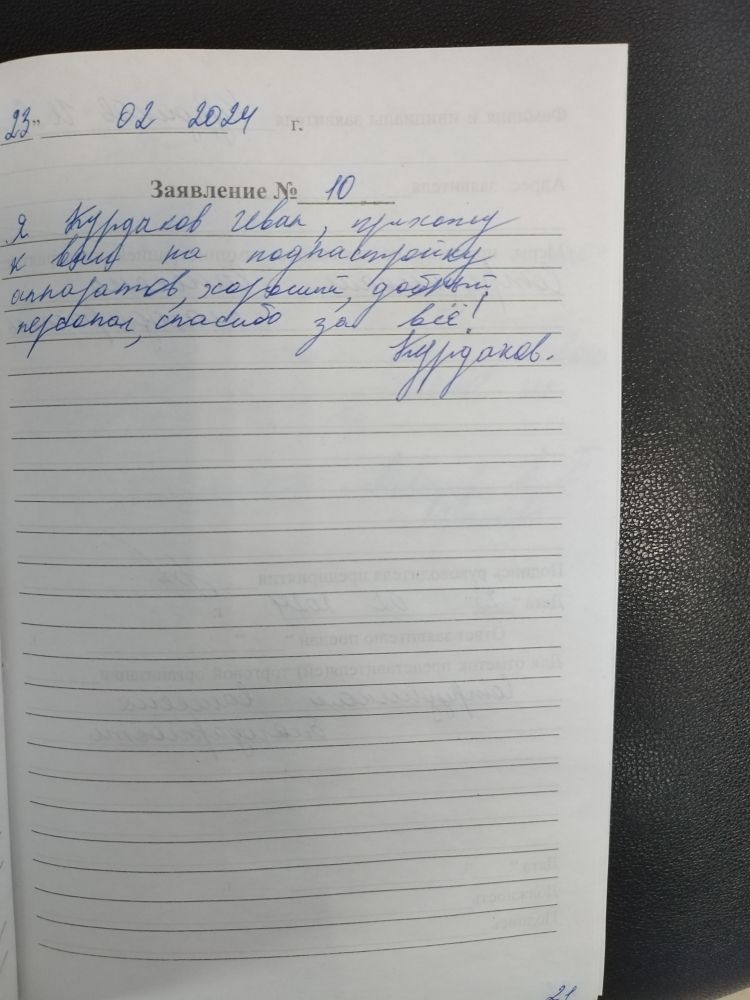 23" 02 2024 г.
Заявление № 10
Я Курдаков Иван, прихожу
к вам на поднастройку
аппаратов, хороший, добрый
персонал, спасибо за всё!
Курдаков.
21